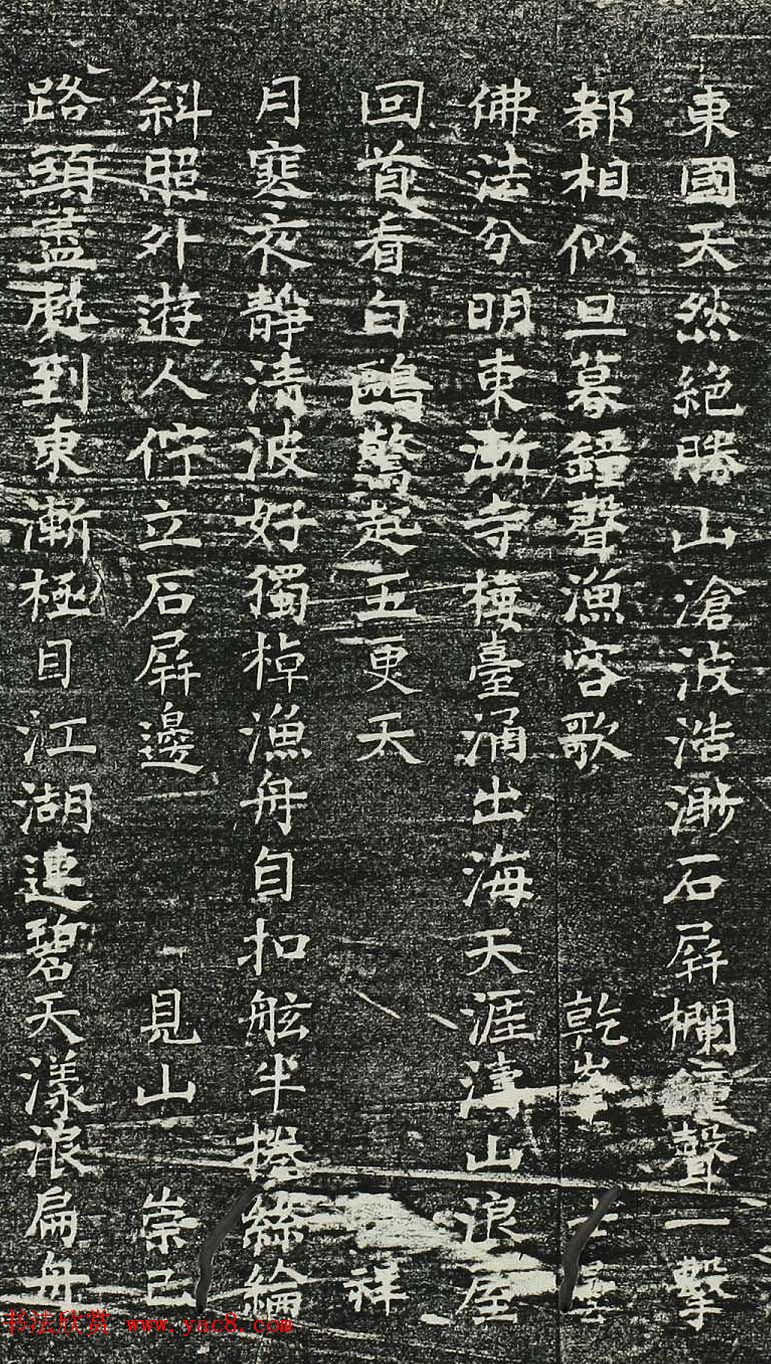 東國天然絕勝山滄波浩渺石屛欄鐘聲一擊
都相似旦暮鐘聲漁客歌 乾峯 士曇
佛法分明東漸寺梅臺涌出海天涯濤山浪屋
回首看白鷗驚起五更天 祥
月寒夜靜清波好獨棹漁舟自扣舷半捲絲綸
斜照外遊人佇立石屛邊 見山 崇已
路頭盡處到東漸極目江湖連碧天漾浪扁舟
书法欣赏 www.yac8.com